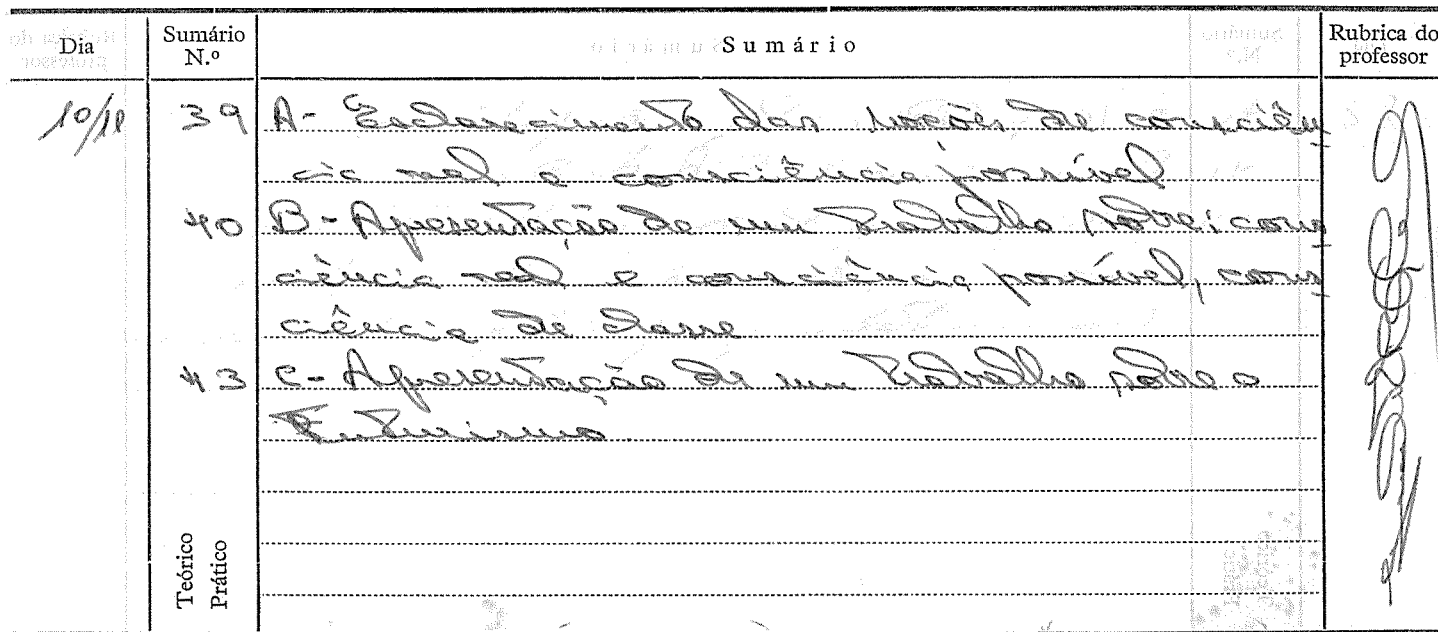 Dia
Sumário N.º
Sumário
Rubrica do professor
10/11 39 A - Esclarecimento das noções de consciên
cia real e consciência possível
40 B - Apresentação de um trabalho sobre: cons
ciência real e consciência possível, cons
ciência de classe
43 C - Apresentação de um trabalho sobre o
Futurismo.
Teórico
Prático